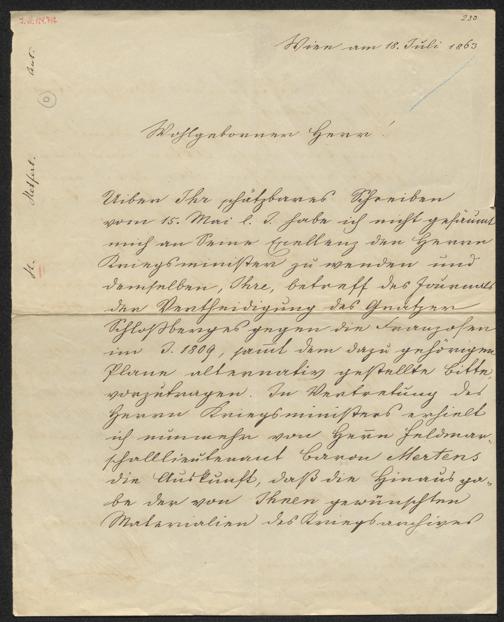 230
Wien am 18. Juli 1863
Wohlgeborner Herr!
Uiber Ihr schätzbares Schreiben
vom 15. Mai l. J. habe ich nicht gesäumt
mich an Seine Excellenz den Herrn
Kriegsminister zu wenden und
demselben, Ihre, betreff des Journals
der Vertheidigung des Gratzer
Schloßberges gegen die Franzosen
im J. 1809, sammt dem dazu gehörigen
Plane alternativ gestellte Bitte
vorzutragen. In Vertretung des
Herrn Kriegsministers erhielt
ich nunmehr von Herrn Feldmar-
schalllieutenant Baron Mertens
die Auskunft, daß die Hinausga-
be der von Ihnen gewünschten
Materialien des Kriegsarchives